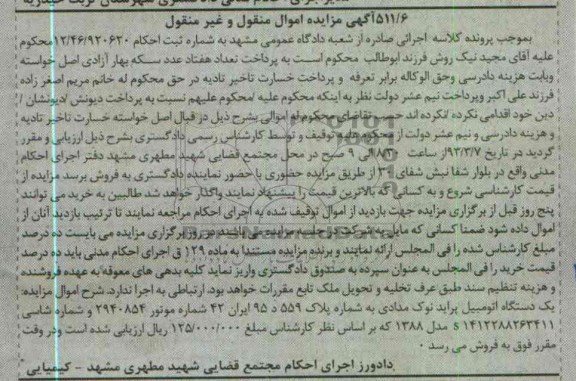 ۵۱۱/۶آگهی مزایده اموال منقول و غیر منقول
بموجب پرونده کلاسه اجرائی صادره از شعبه دادگاه عمومی مشهد به شماره ثبت احکام ۱۲/۴۶/۹۲۰۶۲۰محکوم
علیه آقای مجید نیک روش فرزند ابوطالب محکوم است به پرداخت تعداد هفتاد عدد سکه بهار آزادی اصل خواسته
وبابت هزینه دادرسی وحق الوکاله برابر تعرفه و پرداخت خسارت تاخیر تادیه در حق محکوم له خانم مریم اصغر زاده
فرزند علی اکبر وپرداخت نیم عشر دولت نظر به اینکه محکوم علیه /محکوم علیهم نسبت به پرداخت دیونش /دیونشان /
دین خود اقدامی نکرده /نکرده اند حسب تقاضای محکوم له اموالی بشرح ذیل در قبال اصل خواسته خسارت تاخیر تادیه
و هزینه دادرسی و نیم عشر دولت از محکوم علیه توقیف و توسط کارشناس رسمی دادگستری بشرح ذیل ارزیابی و مقرر
گردید در تاریخ ۹۳/۳/۷از ساعت ۸/۳۰الی ۹ صبح در محل مجتمع قضایی شهید مطهری مشهد دفتر اجرای احکام
مدنی واقع در بلوار شفا نبش شفای ۳۰ از طریق مزایده حضوری با حضور نماینده دادگستری به فروش برسد مزایده از
قیمت کارشناسی شروع و به کسانی که بالاترین قیمت را پیشنهاد نمایند واگذار خواهد شد طالبین به خرید می توانند
پنج روز قبل از برگزاری مزایده جهت بازدید از اموال توقیف شده به اجرای احکام مراجعه نمایند تا ترتیب بازدید آنان از
اموال داده شود ضمنا کسانی که مایل به شرکت در جلسه مزایده می باشند در روز برگزاری مزایده می بایست ده درصد
مبلغ کارشناس شده را فی المجلس ارائه نمایند و برنده مزایده مستندا به ماده ۱۲۹ ق اجرای احکام مدنی باید ده درصد
قیمت خرید را فی المجلس به عنوان سپرده به صندوق دادگستری واریز نماید کلیه بدهی های معوقه به عهده فروشنده
و هزینه تنظیم سند طبق عرف تخلیه و تحویل ملک تابع مقررات خواهد بود. ارتباطی به اجرا ندارد. شرح اموال مزایده:
یک دستگاه اتومبیل پراید نوک مدادی به شماره پلاک ۵۵۹ د ۹۵ ایران ۴۲ شماره موتور ۲۹۴۰۸۵۴ و شماره شاسی
s ۱۴۱۲۲۸۸۲۶۳۴۱۱ مدل ۱۳۸۸ که بر اساس نظر کارشناس مبلغ ۱۲۵/۰۰۰/۰۰۰ ریال ارزیابی شده است ودر وقت
مقرر فوق به فروش می رسد ۰
دادورز اجرای احکام مجتمع قضایی شهید مطهری مشهد - کیمیایی